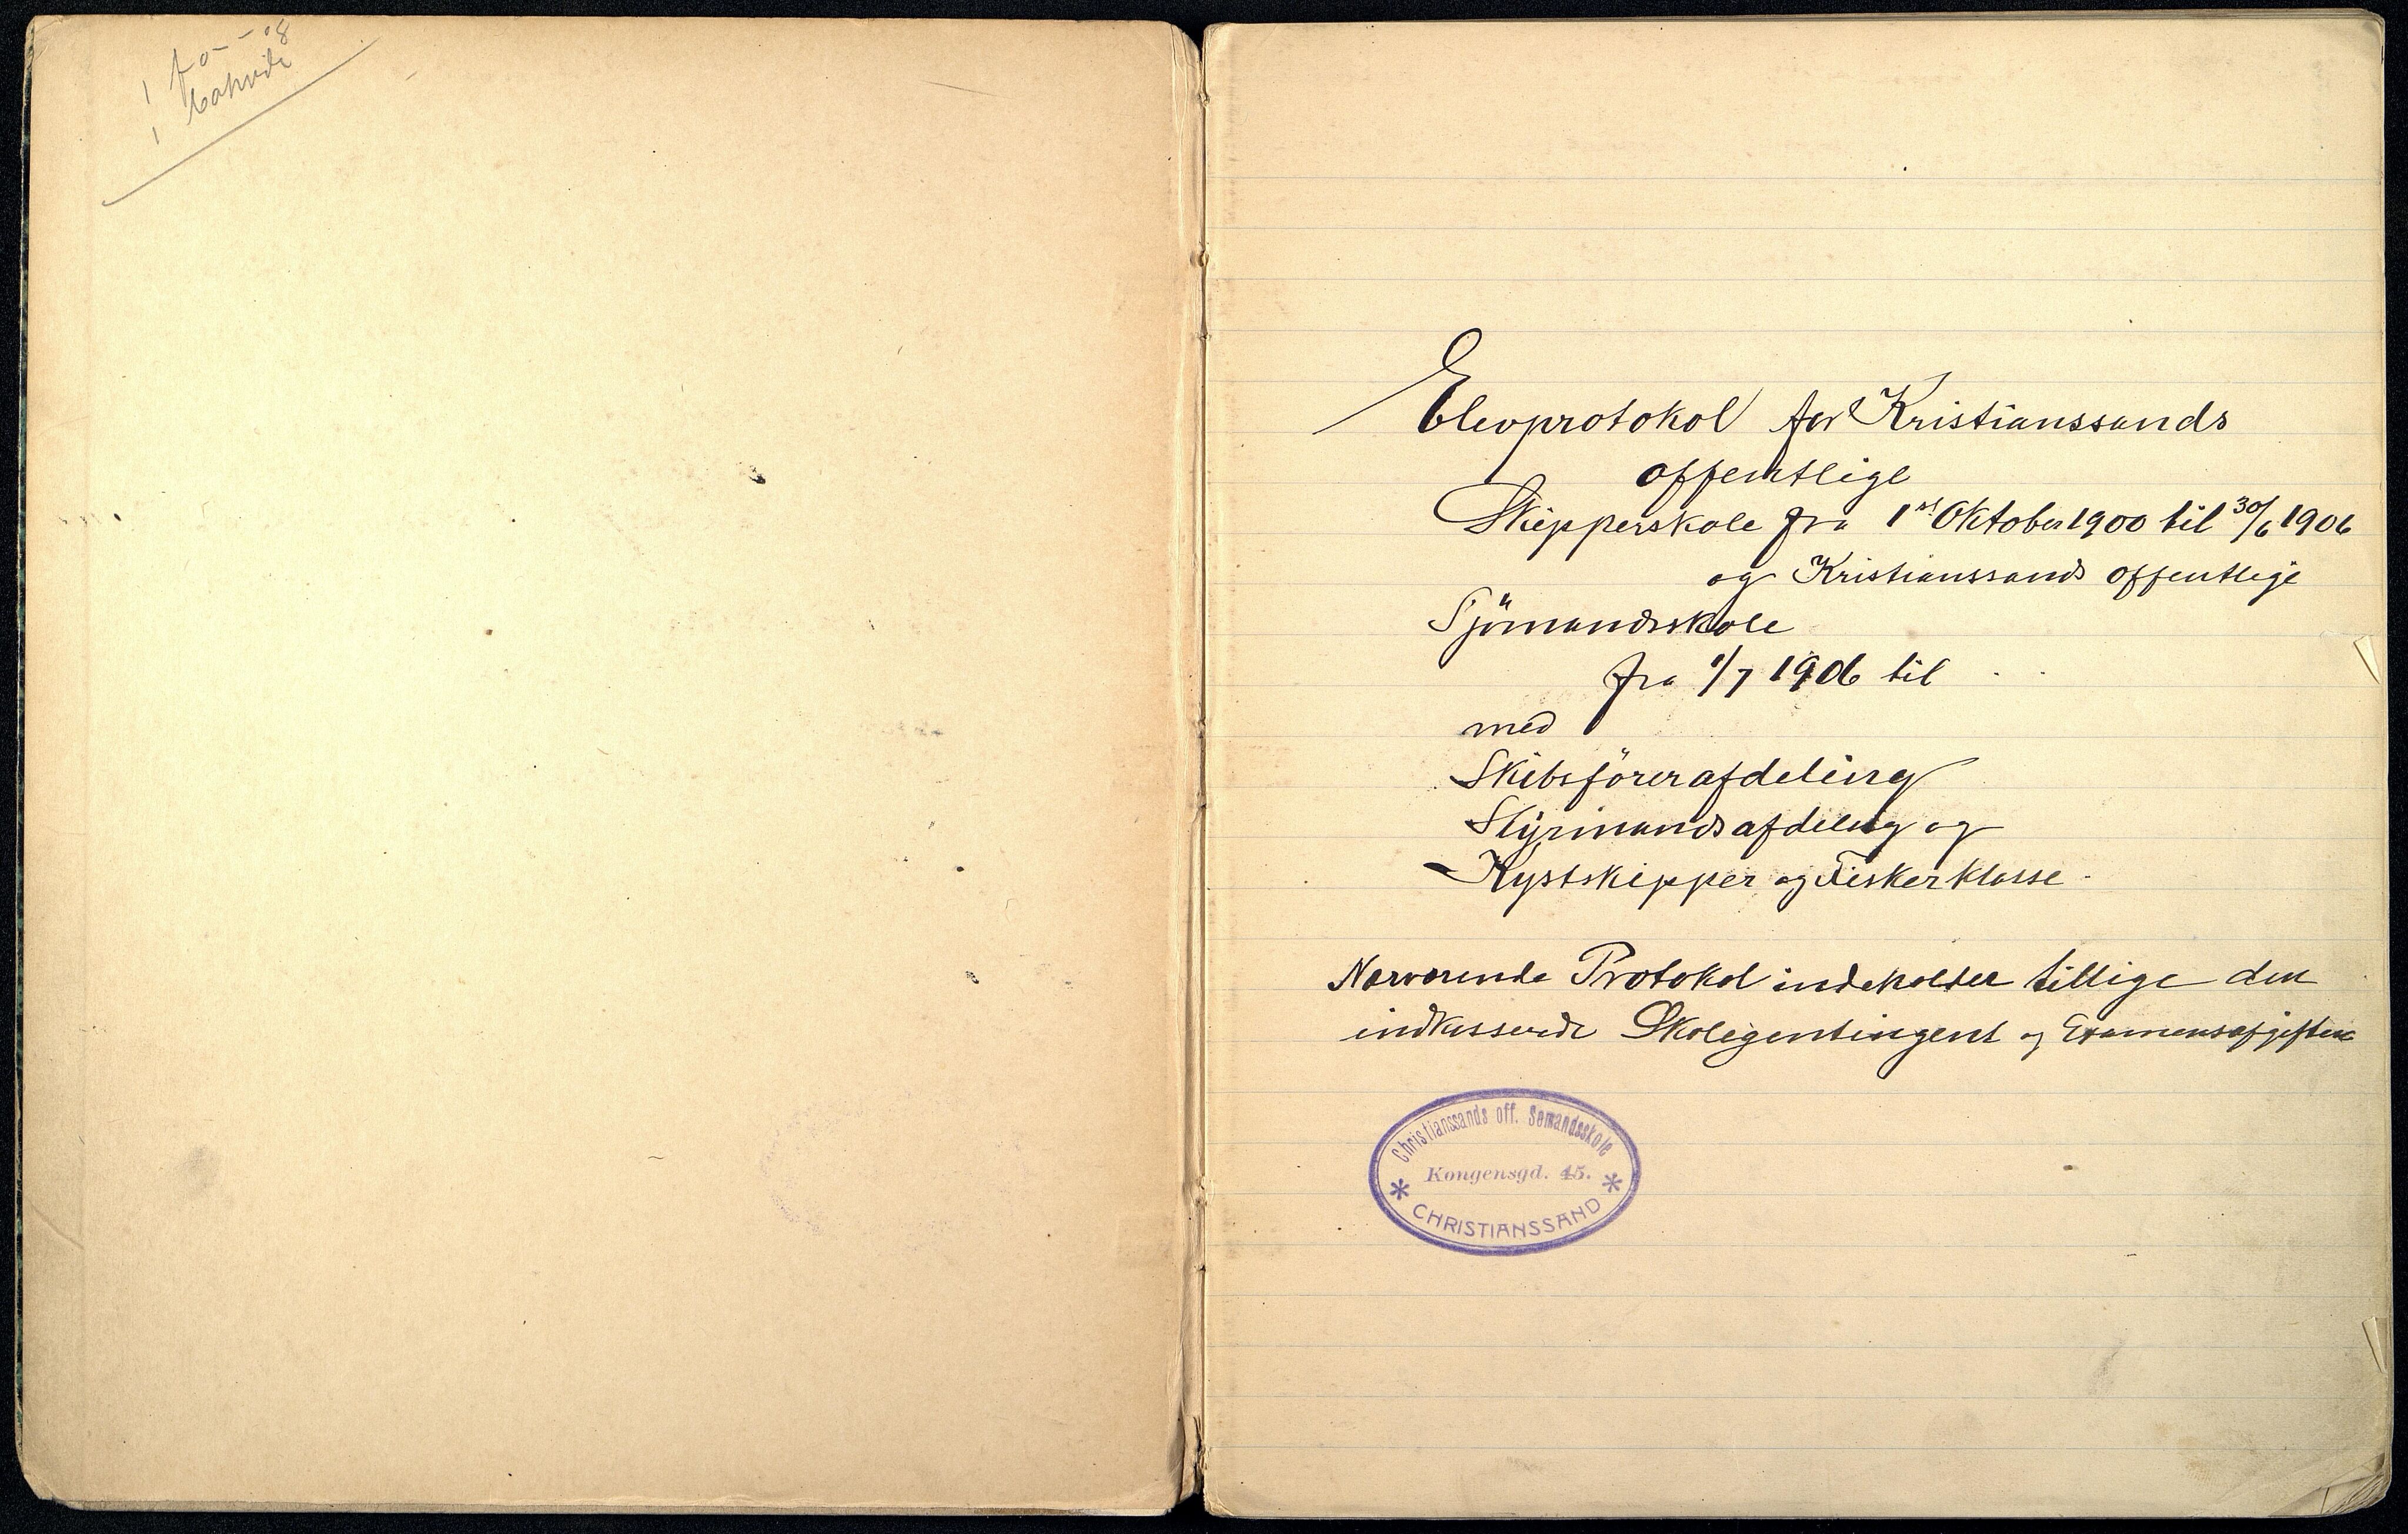 Elevprotokol for Kristianssands
offentlige
Skipperskole fra 1st Oktober 1900 til 30/6 1906
og Kristianssands offentlige
Sjömandsskole
fra 1/7 1906 til . .
med
Skibsförerafdeling
Styrmandsafdeling og
Kystskipper og Fiskerklasse.
Nærværende Protokol indeholder tillige den
indkasserede Skolegentingent og Examensafgiften
Christianssands off. Sømandsskole
Kongensgd. 45.
* CHRISTIANSSAND *